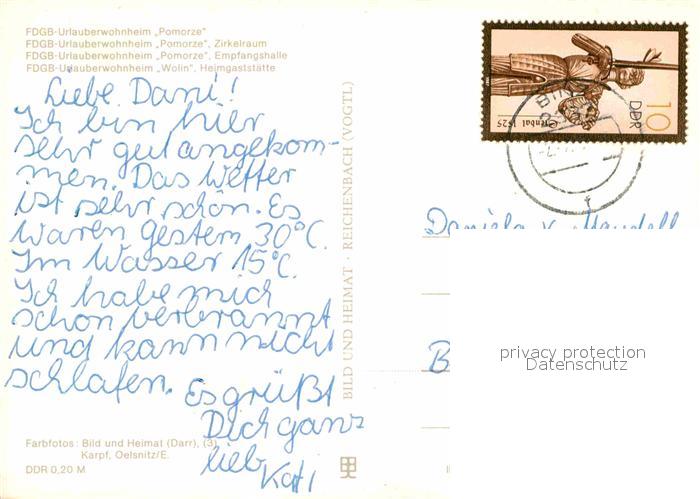 FDGB-Urlauberwohnheim „Pomorze"
FDGB-Urlauberwohnheim „Pomorze", Zirkelraum
FDGB-Urlauberwohnheim „Pomorze", Empfangshalle
FDGB-Urlauberwohnheim „Wolin", Heimgaststätte
Liebe Dani!
Ich bin hier
sehr gut angekom-
men. Das Wetter
ist sehr schön. Es
waren gestern 30°C.
Im Wasser 15°C.
Ich habe mich
schon verbrannt
und kann nicht
schlafen. Es grüßt
Dich ganz
lieb
Kati
Farbfotos: Bild und Heimat (Darr), (3)
Karpf, Oelsnitz/E.
DDR 0,20 M
BILD UND HEIMAT · REICHENBACH (VOGTL)
DDR
10
Stendal 1525
Daniela
B
privacy protection
Datenschutz